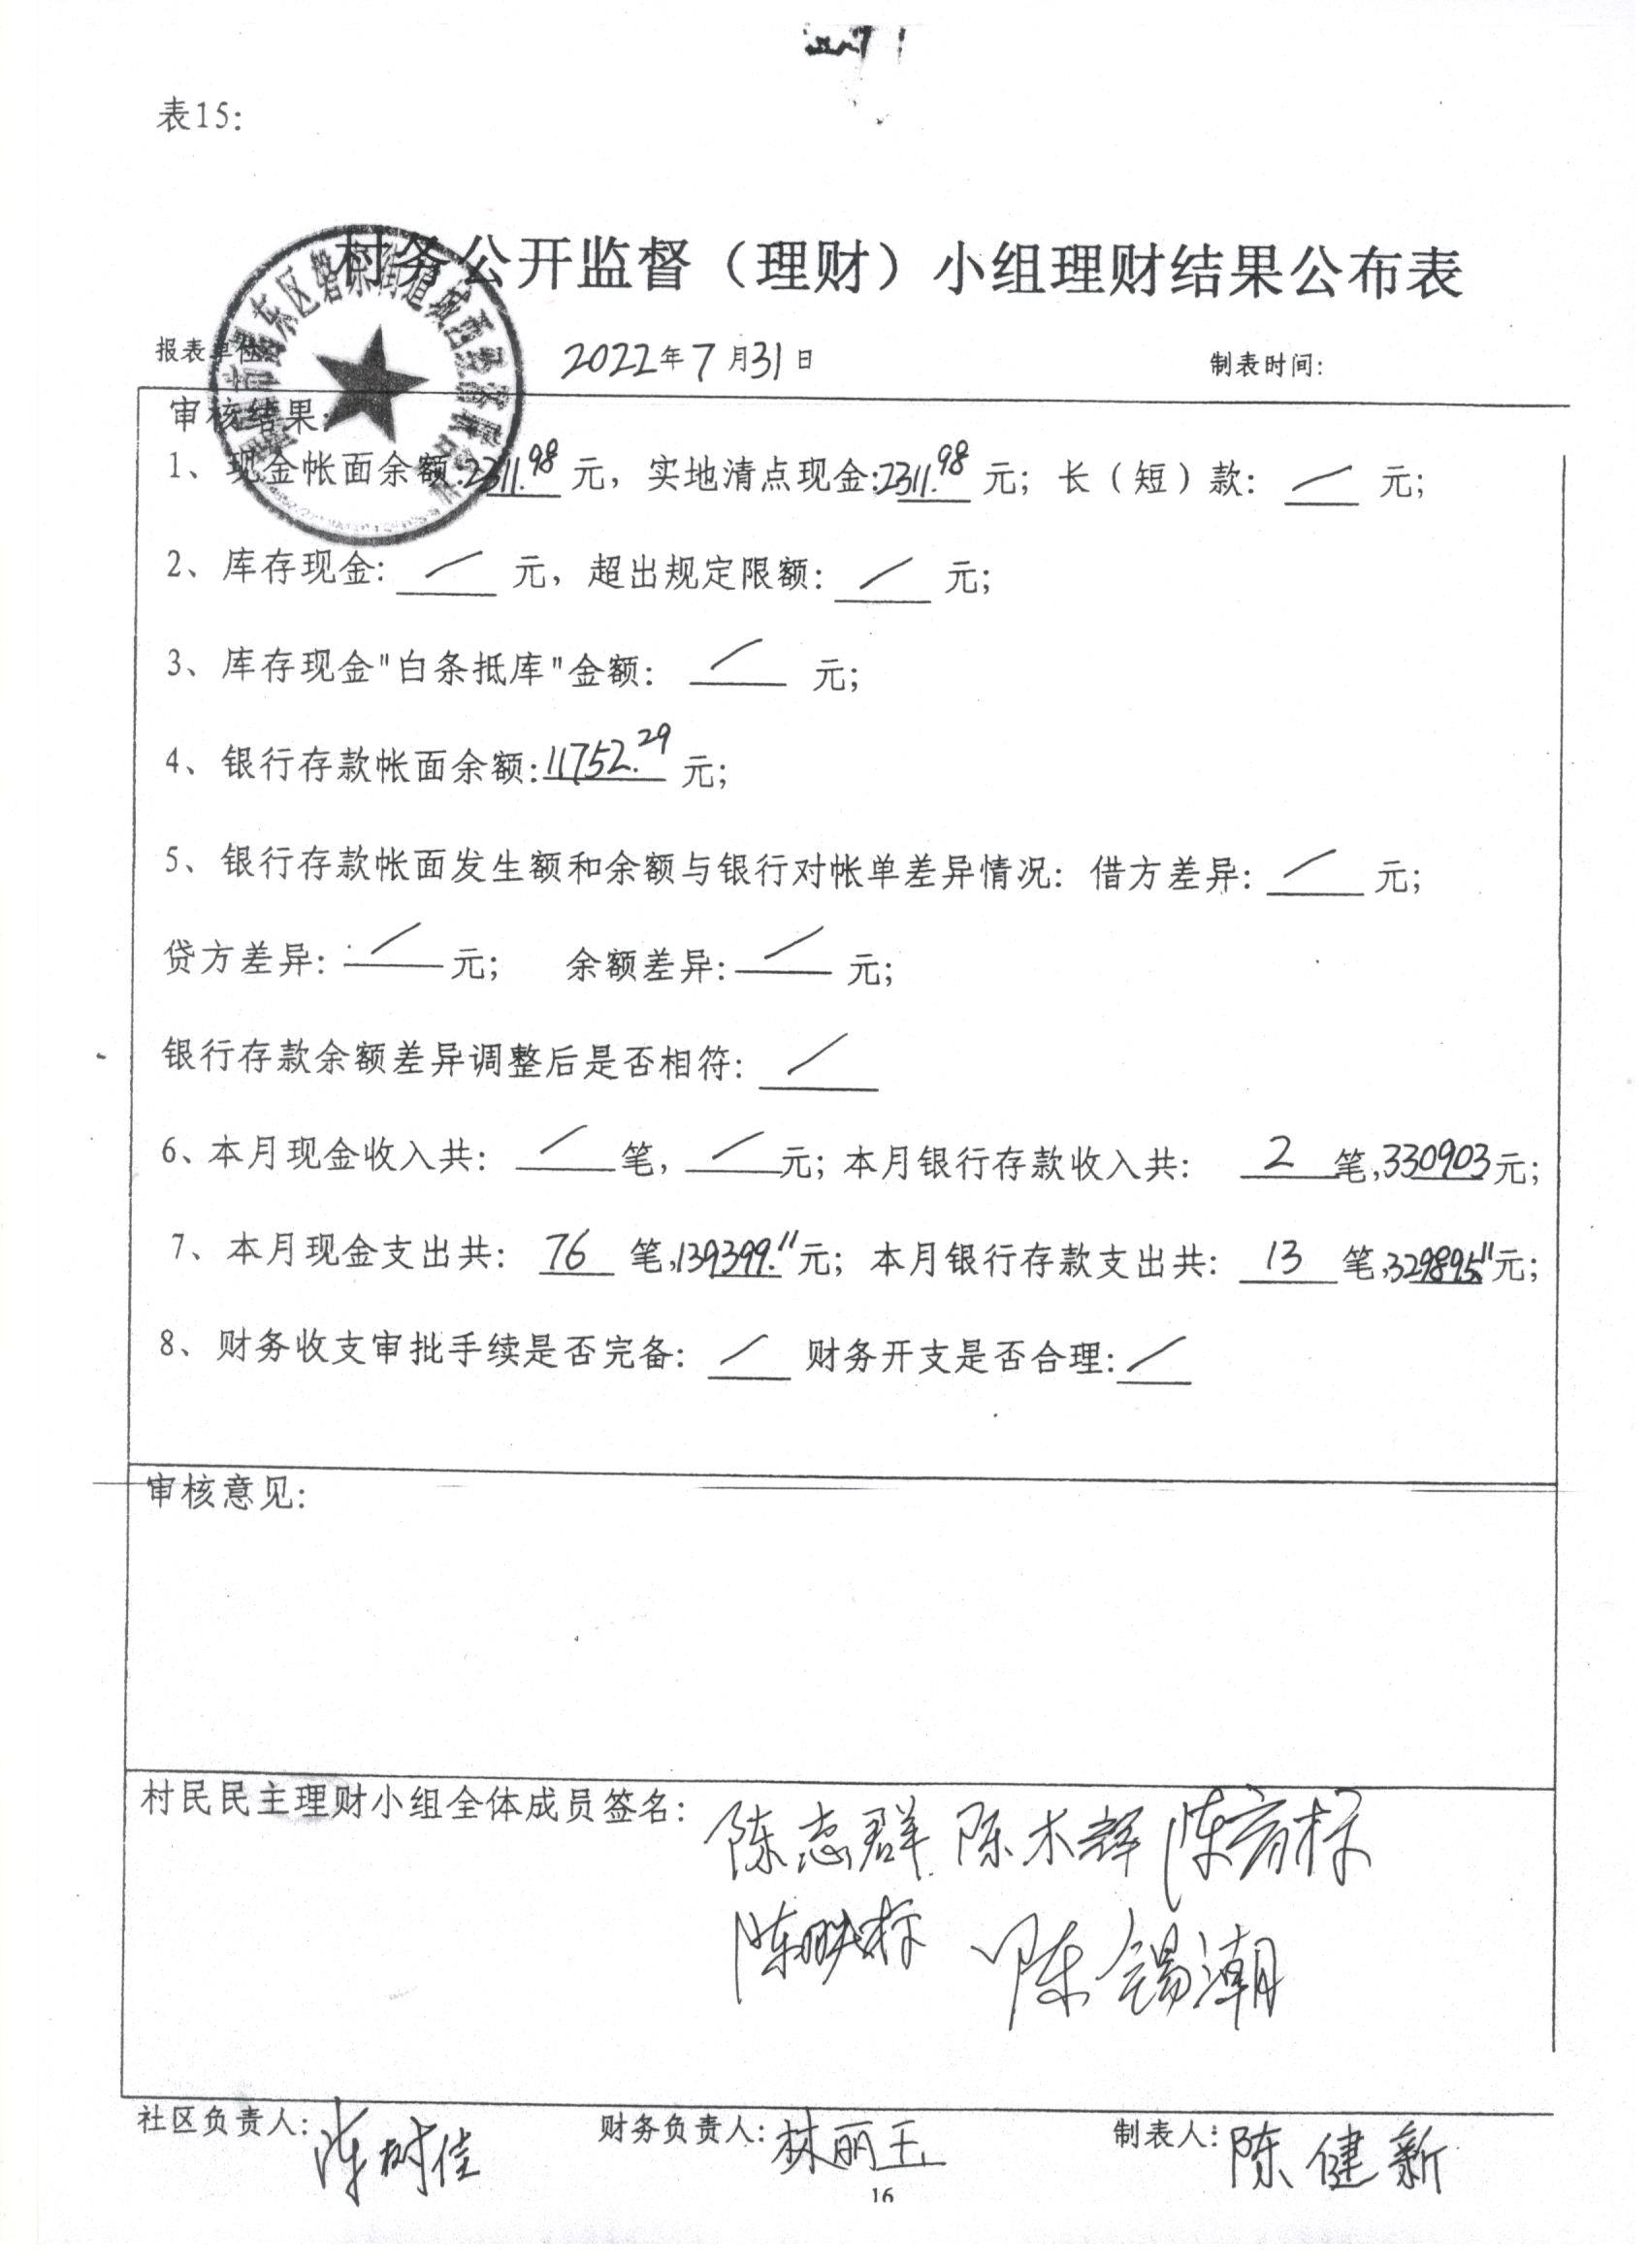 表15：
村务公开监督（理财）小组理财结果公布表
报表单位 2022年7月31日 制表时间：
审核结果：
1、现金帐面余额：2311.98元，实地清点现金：2311.98元；长（短）款：／元；
2、库存现金：／元，超出规定限额：／元；
3、库存现金"白条抵库"金额：／元；
4、银行存款帐面余额：11752.29元；
5、银行存款帐面发生额和余额与银行对帐单差异情况：借方差异：／元；
贷方差异：／元； 余额差异：／元；
银行存款余额差异调整后是否相符：／
6、本月现金收入共：／笔，／元；本月银行存款收入共：2笔，330903元；
7、本月现金支出共：76笔，139399.11元；本月银行存款支出共：13笔，329895.11元；
8、财务收支审批手续是否完备：／ 财务开支是否合理：／
审核意见：
村民民主理财小组全体成员签名：
陈志群 陈木辉
陈锡潮
社区负责人：陈树佳 财务负责人：林丽玉 制表人：陈健新
16